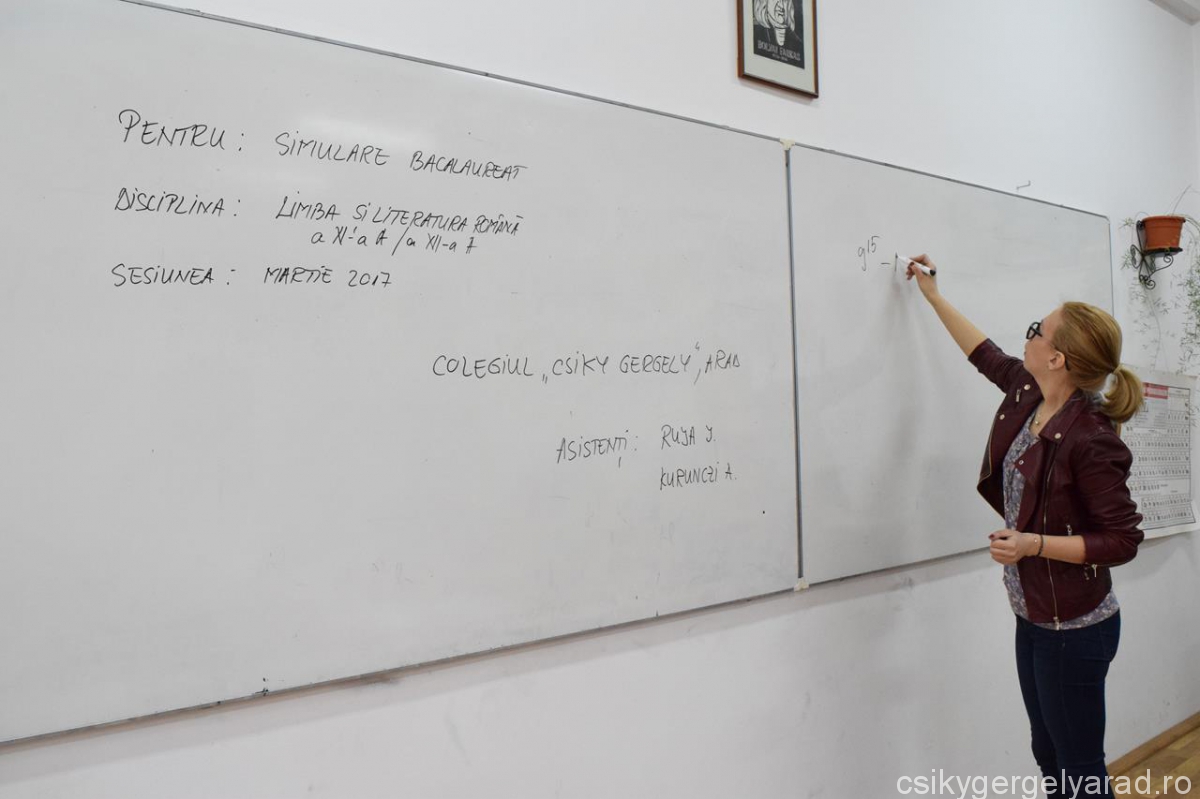 PENTRU: SIMULARE BACALAUREAT
DISCIPLINA: LIMBA SI LITERATURA ROMÂNĂ
a XI-a A / a XII-a A
SESIUNEA: MARTIE 2017
COLEGIUL „CSIKY GERGELY", ARAD
ASISTENȚI: RUJA J.
KURUNCZI A.
9¹⁵ –
csikygergelyarad.ro